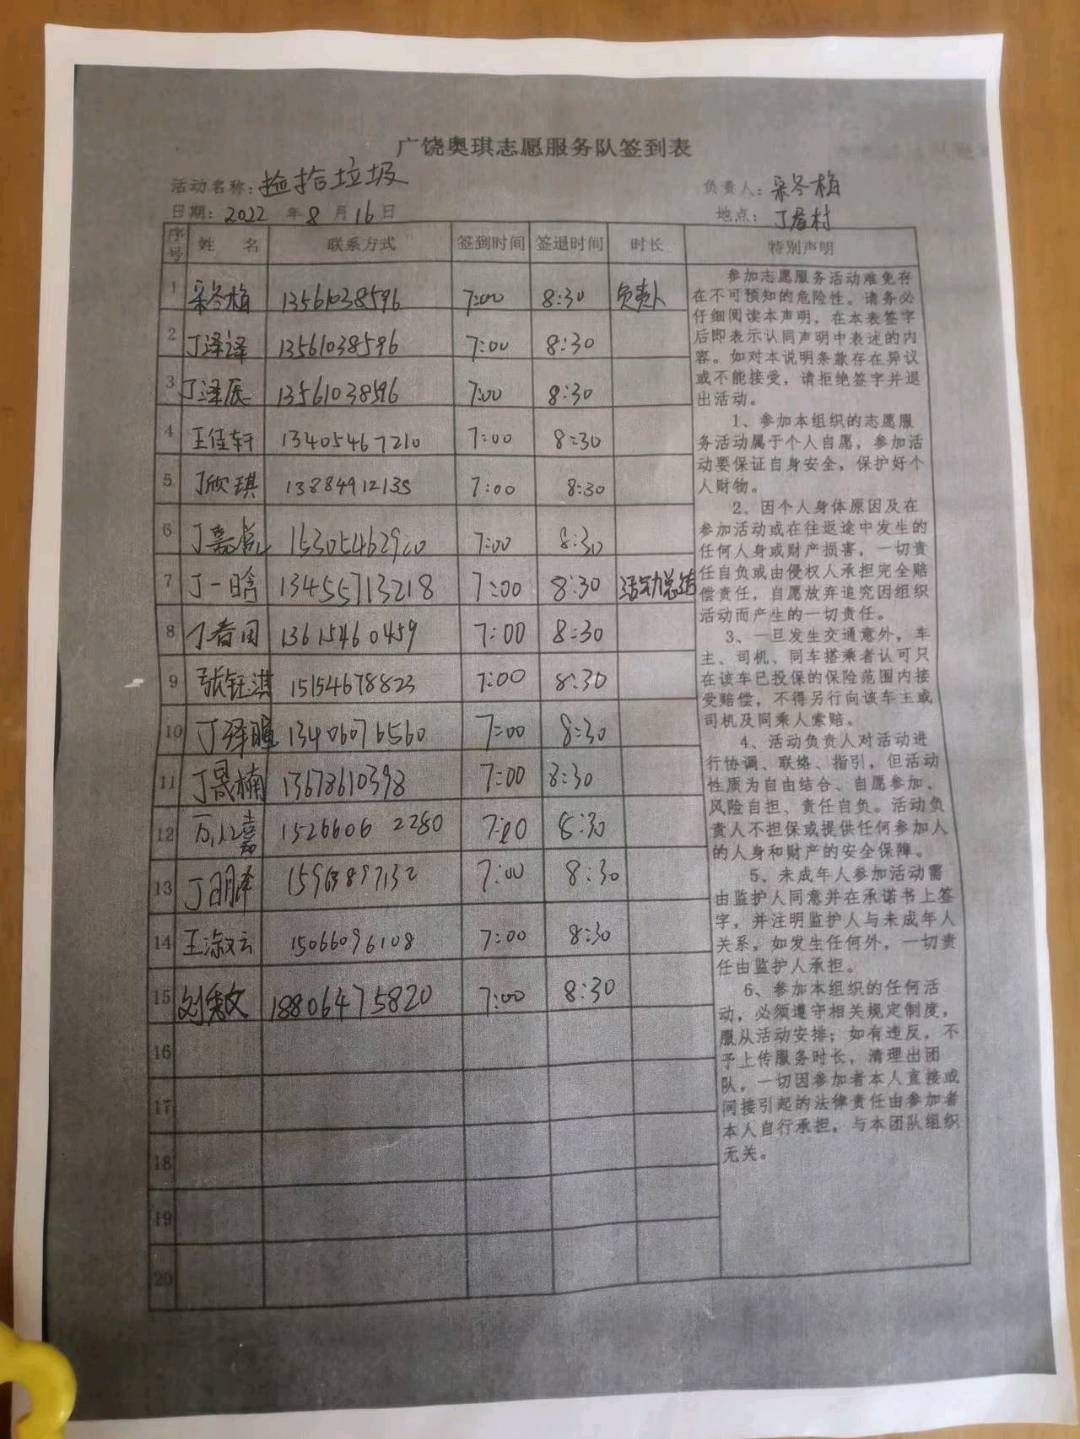 广饶奥琪志愿服务队签到表
活动名称：捡拾垃圾 负责人：采冬梅
日期：2022 年 8 月 16 日 地点：丁屋村
序号 姓 名 联系方式 签到时间 签退时间 时长 特别声明
1 采冬梅 13561038596 7:00 8:30 负责人
2 丁泽译 13561038596 7:00 8:30
3 丁泽辰 13561038596 7:00 8:30
4 王佳轩 13405467210 7:00 8:30
5 丁欣琪 13884912135 7:00 8:30
6 丁嘉 15305462920 7:00 8:30
7 丁一晗 13455713218 7:00 8:30 活动总结
8 丁春 13615460459 7:00 8:30
9 张钰淇 15154678823 7:00 8:30
10 丁泽暄 13406076560 7:00 8:30
11 丁晟楠 13678610398 7:00 8:30
12 嘉 1526606 2280 7:00 8:30
13 丁明泽 15963897132 7:00 8:30
14 王淑云 15066096108 7:00 8:30
15 刘文 18806475820 7:00 8:30
16
17
18
19
20
参加志愿服务活动难免存
在不可预知的危险性。请务必
仔细阅读本声明，在本表签字
后即表示认同声明中表述的内
容。如对本说明条款存在异议
或不能接受，请拒绝签字并退
出活动。
1、参加本组织的志愿服
务活动属于个人自愿，参加活
动要保证自身安全，保护好个
人财物。
2、因个人身体原因及在
参加活动或在往返途中发生的
任何人身或财产损害，一切责
任自负或由侵权人承担完全赔
偿责任，自愿放弃追究因组织
活动而产生的一切责任。
3、一旦发生交通意外，车
主、司机、同车搭乘者认可只
在该车已投保的保险范围内接
受赔偿，不得另行向该车主或
司机及同乘人索赔。
4、活动负责人对活动进
行协调、联络、指引，但活动
性质为自由结合、自愿参加、
风险自担、责任自负。活动负
责人不担保或提供任何参加人
的人身和财产的安全保障。
5、未成年人参加活动需
由监护人同意并在承诺书上签
字，并注明监护人与未成年人
关系，如发生任何外，一切责
任由监护人承担。
6、参加本组织的任何活
动，必须遵守相关规定制度，
服从活动安排；如有违反，不
予上传服务时长，清理出团
队，一切因参加者本人直接或
间接引起的法律责任由参加者
本人自行承担，与本团队组织
无关。